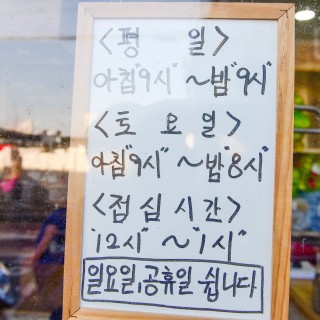 <평 일>
아침"9시" ~밤"9시"
<토 요 일>
아침"9시" ~밤"8시"
<접 심 시 간>
"12시" ~ "1시"
일요일,공휴일 쉽니다